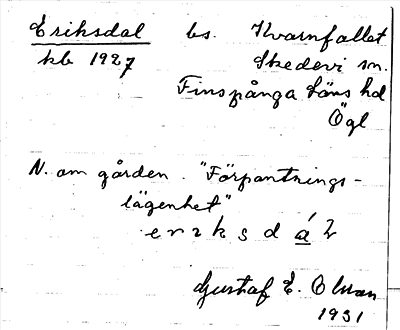 Eriksdal bs. Kvarnfallet
kb 1927 Skedevi sn.
Finspånga läns hd
Ögl
N. om gården. "Förpantnings-
lägenhet"
Gustaf E. Olman
1931